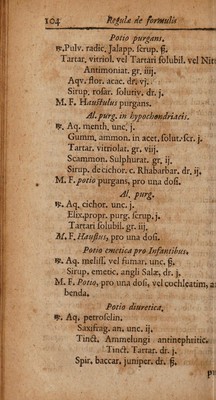 104 Regulæ de formulis
Potio purgans.
℞. Pulv. radic. Jalapp. scrup. ß.
Tartar. vitriol. vel Tartari solubil. vel Nitr
Antimoniat. gr. iiij.
Aqv. flor. acac. dr. vj.
Sirup. rosar. solutiv. dr. j.
M. F. Haustulus purgans.
Al. purg. in hypochondriacis.
℞. Aq. menth, unc, j.
Gumm, ammon. in acet. solut. scr. j.
Tartar. vitriolat. gr. viij.
Scammon. Sulphurat. gr, ij.
Sirup. de cichor. c. Rhabarbar. dr, ij,
M. F. potio purgans, pro una dosi.
Al, purg.
℞. Aq, cichor. unc. j.
Elix. propr. purg. scrup. j.
Tartari solubil. gr. iij.
M. F. Haustus, pro una dosi.
Potio emetica pro Infantibus.
℞. Aq. meliss. vel fumar. unc. ß.
Sirup. emetic. angli Salæ, dr. j.
M. F. Potio, pro una dosi, vel cochleatim, a
benda.
Potio diuretica.
℞. Aq. petroselin.
Saxifrag. an. unc. ij.
Tinct. Ammelungi antinephritic.
Tinct. Tartar. dr. j.
Spir. baccar. juniper. dr. ß.